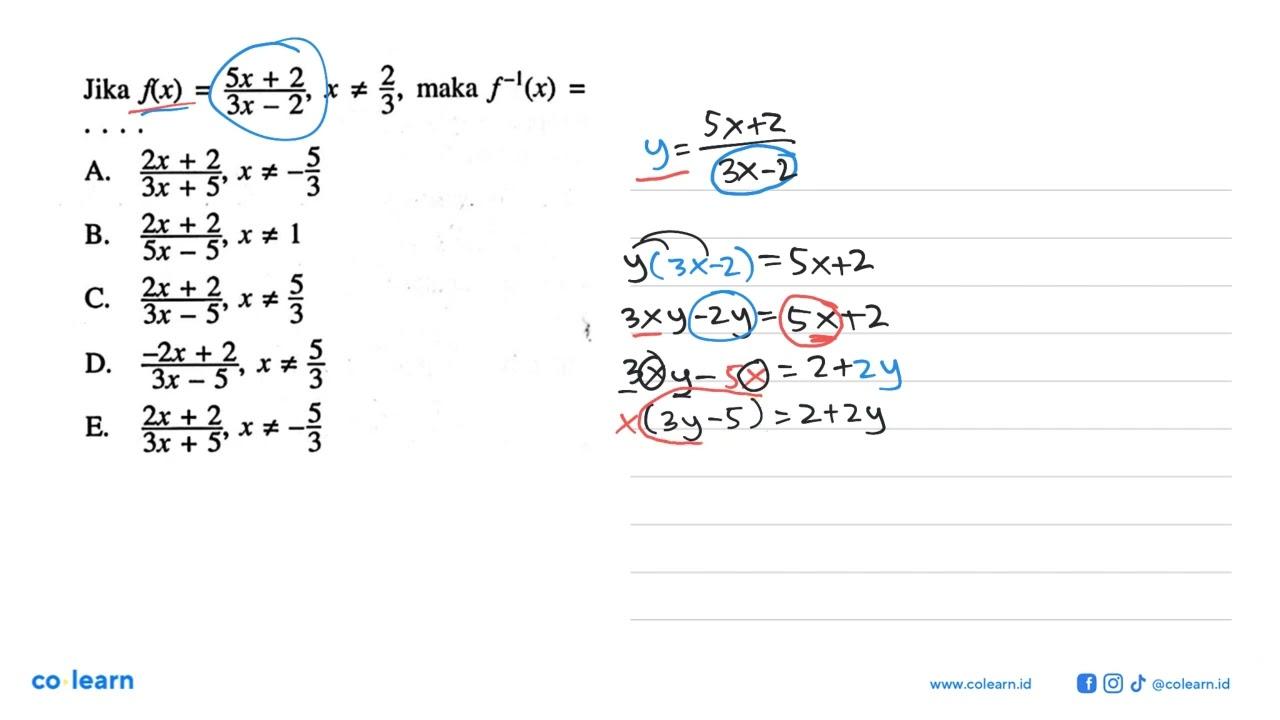 Jika f(x) = \frac{5x + 2}{3x - 2}, x ≠ \frac{2}{3}, maka f^{-1}(x) =
. . . .
A. \frac{2x + 2}{3x + 5}, x ≠ -\frac{5}{3}
B. \frac{2x + 2}{5x - 5}, x ≠ 1
C. \frac{2x + 2}{3x - 5}, x ≠ \frac{5}{3}
D. \frac{-2x + 2}{3x - 5}, x ≠ \frac{5}{3}
E. \frac{2x + 2}{3x + 5}, x ≠ -\frac{5}{3}
y = \frac{5x+2}{3x-2}
y(3x-2) = 5x+2
3xy - 2y = 5x + 2
3xy - 5x = 2 + 2y
x(3y - 5) = 2 + 2y
co learn
www.colearn.id
@colearn.id